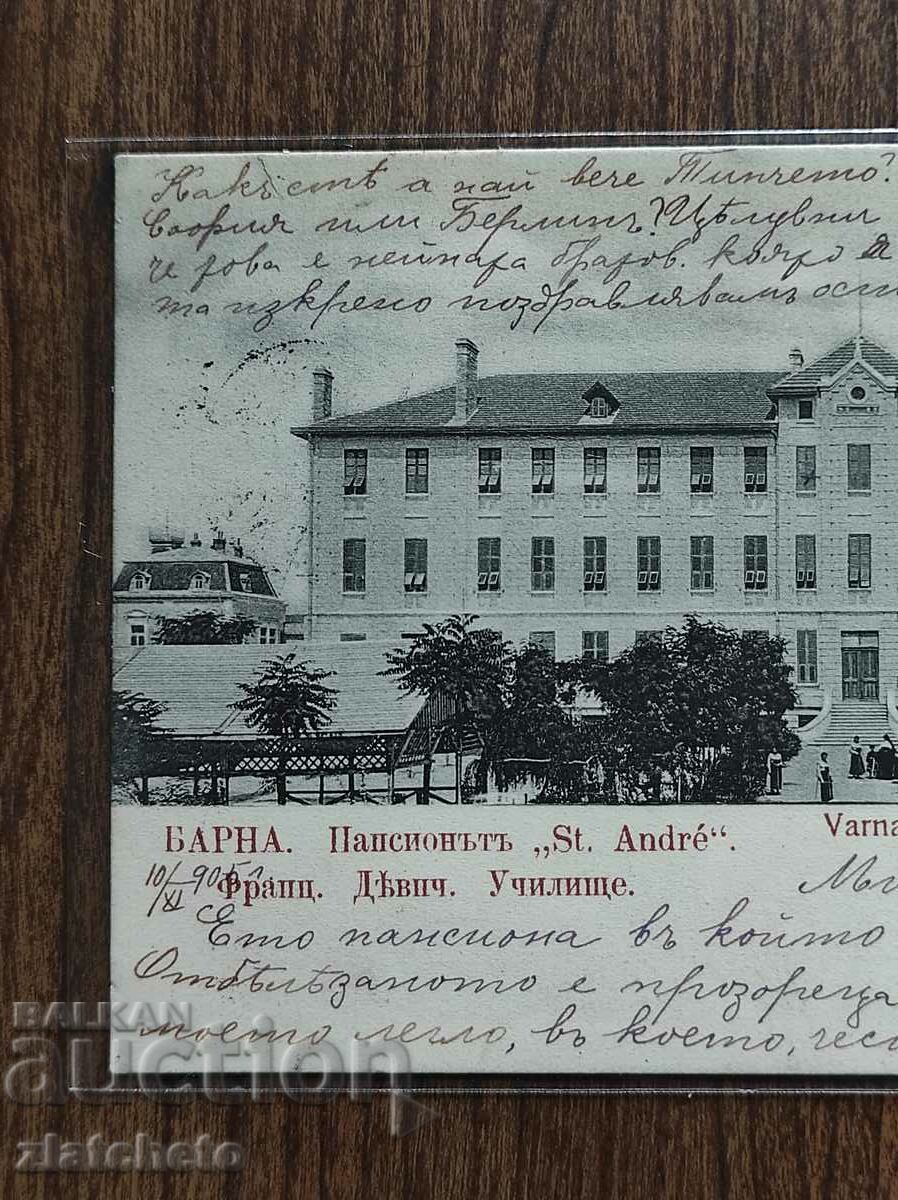 Какъ стѣ а най вече Тинчето?
София или Берлинъ? Цѣлувни
че това е нейната
та искрено поздравлявамъ ост
ВАРНА. Пансионътъ „St. André“.
Varna
10/XI 905 г.
Франц. Дѣвич. Училище.
Ето пансиона въ който
Отбѣлѣзаното е прозореца
моето легло, въ което, чес
BALKAN
auction
zlatcheto